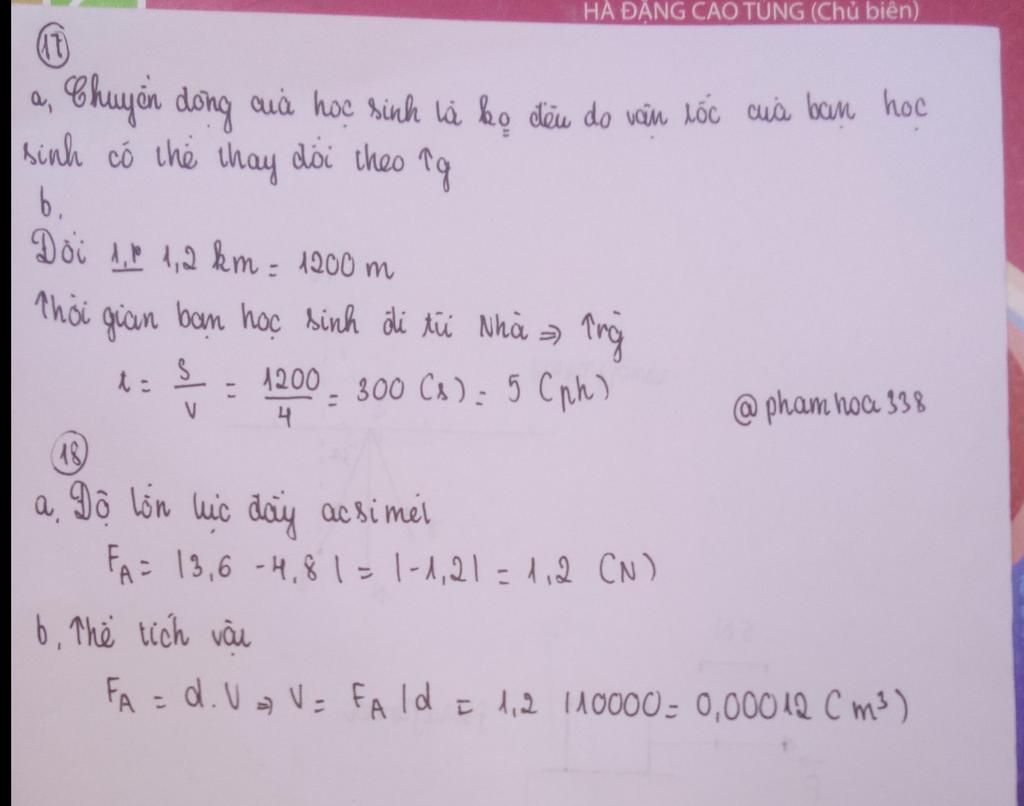 HÀ ĐẶNG CAO TÙNG (Chủ biên)
17
a, Chuyển động của học sinh là ko đều do vận tốc của bạn học
sinh có thể thay đổi theo Tg
b.
Đổi 1,2 km = 1200 m
Thời gian bạn học sinh đi từ Nhà => Trg
t = S/v = 1200/4 = 300 (s) = 5 (ph)
@phamhoa338
18
a. Độ lớn lực đẩy acsimét
FA = |3,6 - 4,8| = |-1,2| = 1,2 (N)
b, Thể tích vật
FA = d.V => V = FA/d = 1,2/10000 = 0,00012 (m³)